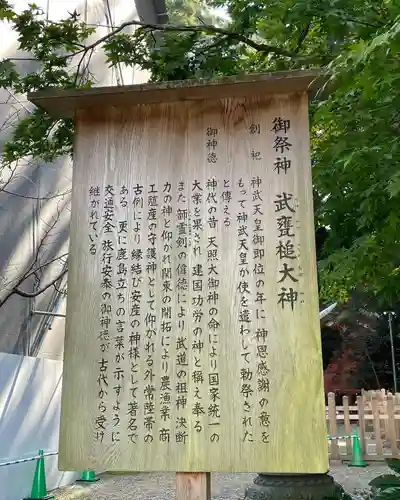 御祭神　武甕槌大神
創祀　神武天皇御即位の年に　神恩感謝の意を
もって神武天皇が使を遣わして勅祭された
と伝える
御神徳　神代の昔　天照大御神の命により国家統一の
大業を果され　建国功労の神と称え奉る
また韴霊剣の偉徳により　武道の祖神　決断
力の神と仰がれ関東の開拓により　農漁業　商
工殖産の守護神として仰がれる外常陸帯の
古例により縁結び安産の神様として著名で
ある　更に鹿島立ちの言葉が示すように
交通安全　旅行安泰の御神徳が古代から受け
継がれている